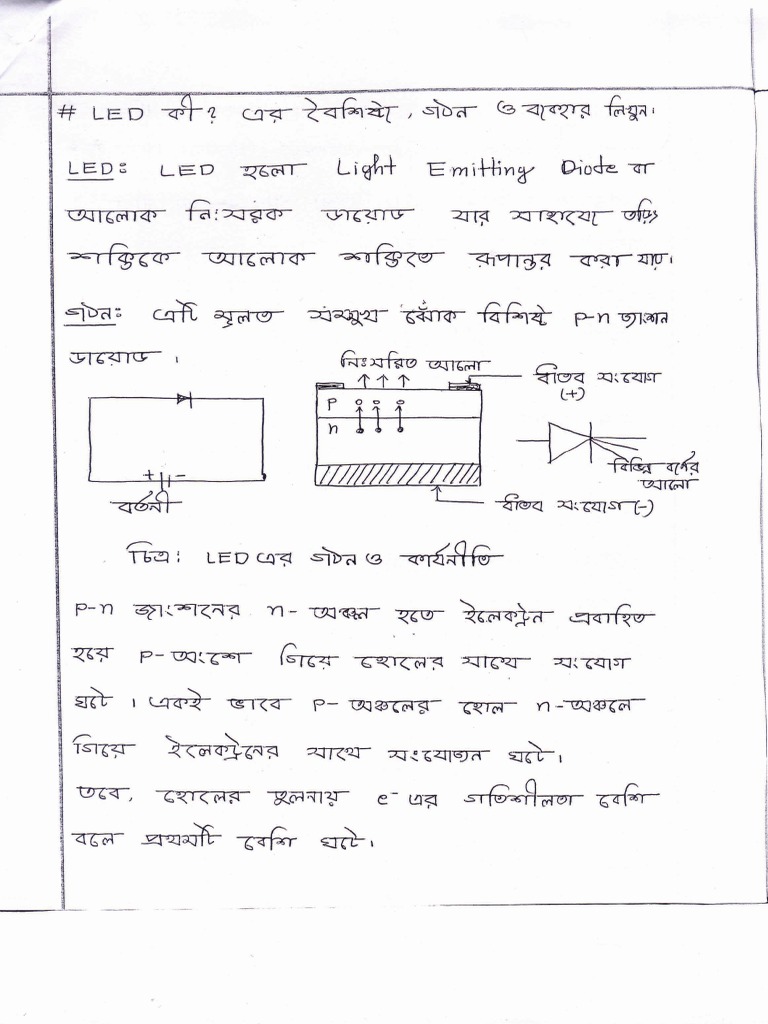 # LED কী? এর বৈশিষ্ট্য, গঠন ও ব্যবহার লিখুন।
LED: LED হলো Light Emitting Diode বা
আলোক নিঃসরক ডায়োড যার সাহায্যে তড়িৎ
শক্তিকে আলোক শক্তিতে রূপান্তর করা যায়।
গঠন: এটি মূলত সম্মুখ ঝোঁক বিশিষ্ট p-n জাংশন
ডায়োড।
নিঃসরিত আলো
ধাতব সংযোগ
(+)
P
n
+ -
বর্তনী
বিভিন্ন বর্ণের
আলো
ধাতব সংযোগ (-)
চিত্র: LED এর গঠন ও কার্যনীতি
p-n জাংশনের n- অঞ্চল হতে ইলেকট্রন প্রবাহিত
হয়ে p- অংশে গিয়ে হোলের সাথে সংযোগ
ঘটে। একই ভাবে p- অঞ্চলের হোল n-অঞ্চলে
গিয়ে ইলেকট্রনের সাথে সংযোজন ঘটে।
তবে, হোলের তুলনায় e⁻ এর গতিশীলতা বেশি
বলে প্রথমটি বেশি ঘটে।